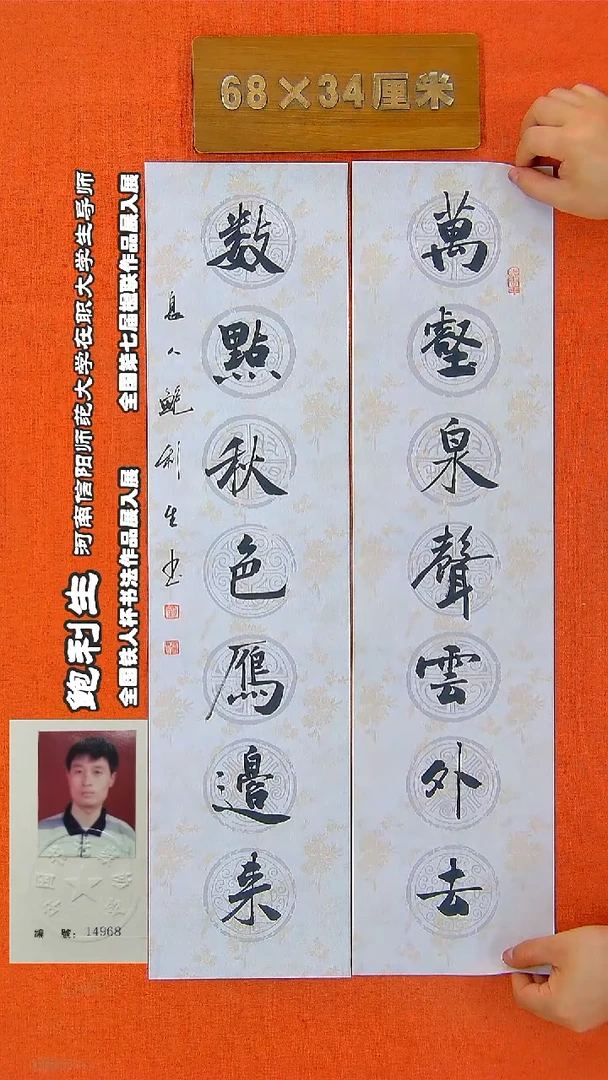 68×34厘米
萬壑泉聲雲外去
数點秋色鴈邊来
息人鲍利生书
全国铁人杯书法作品展入展 全国第七届楹联作品展入展
鲍利生 河南信阳师范大学在职大学生导师
編 號：14968